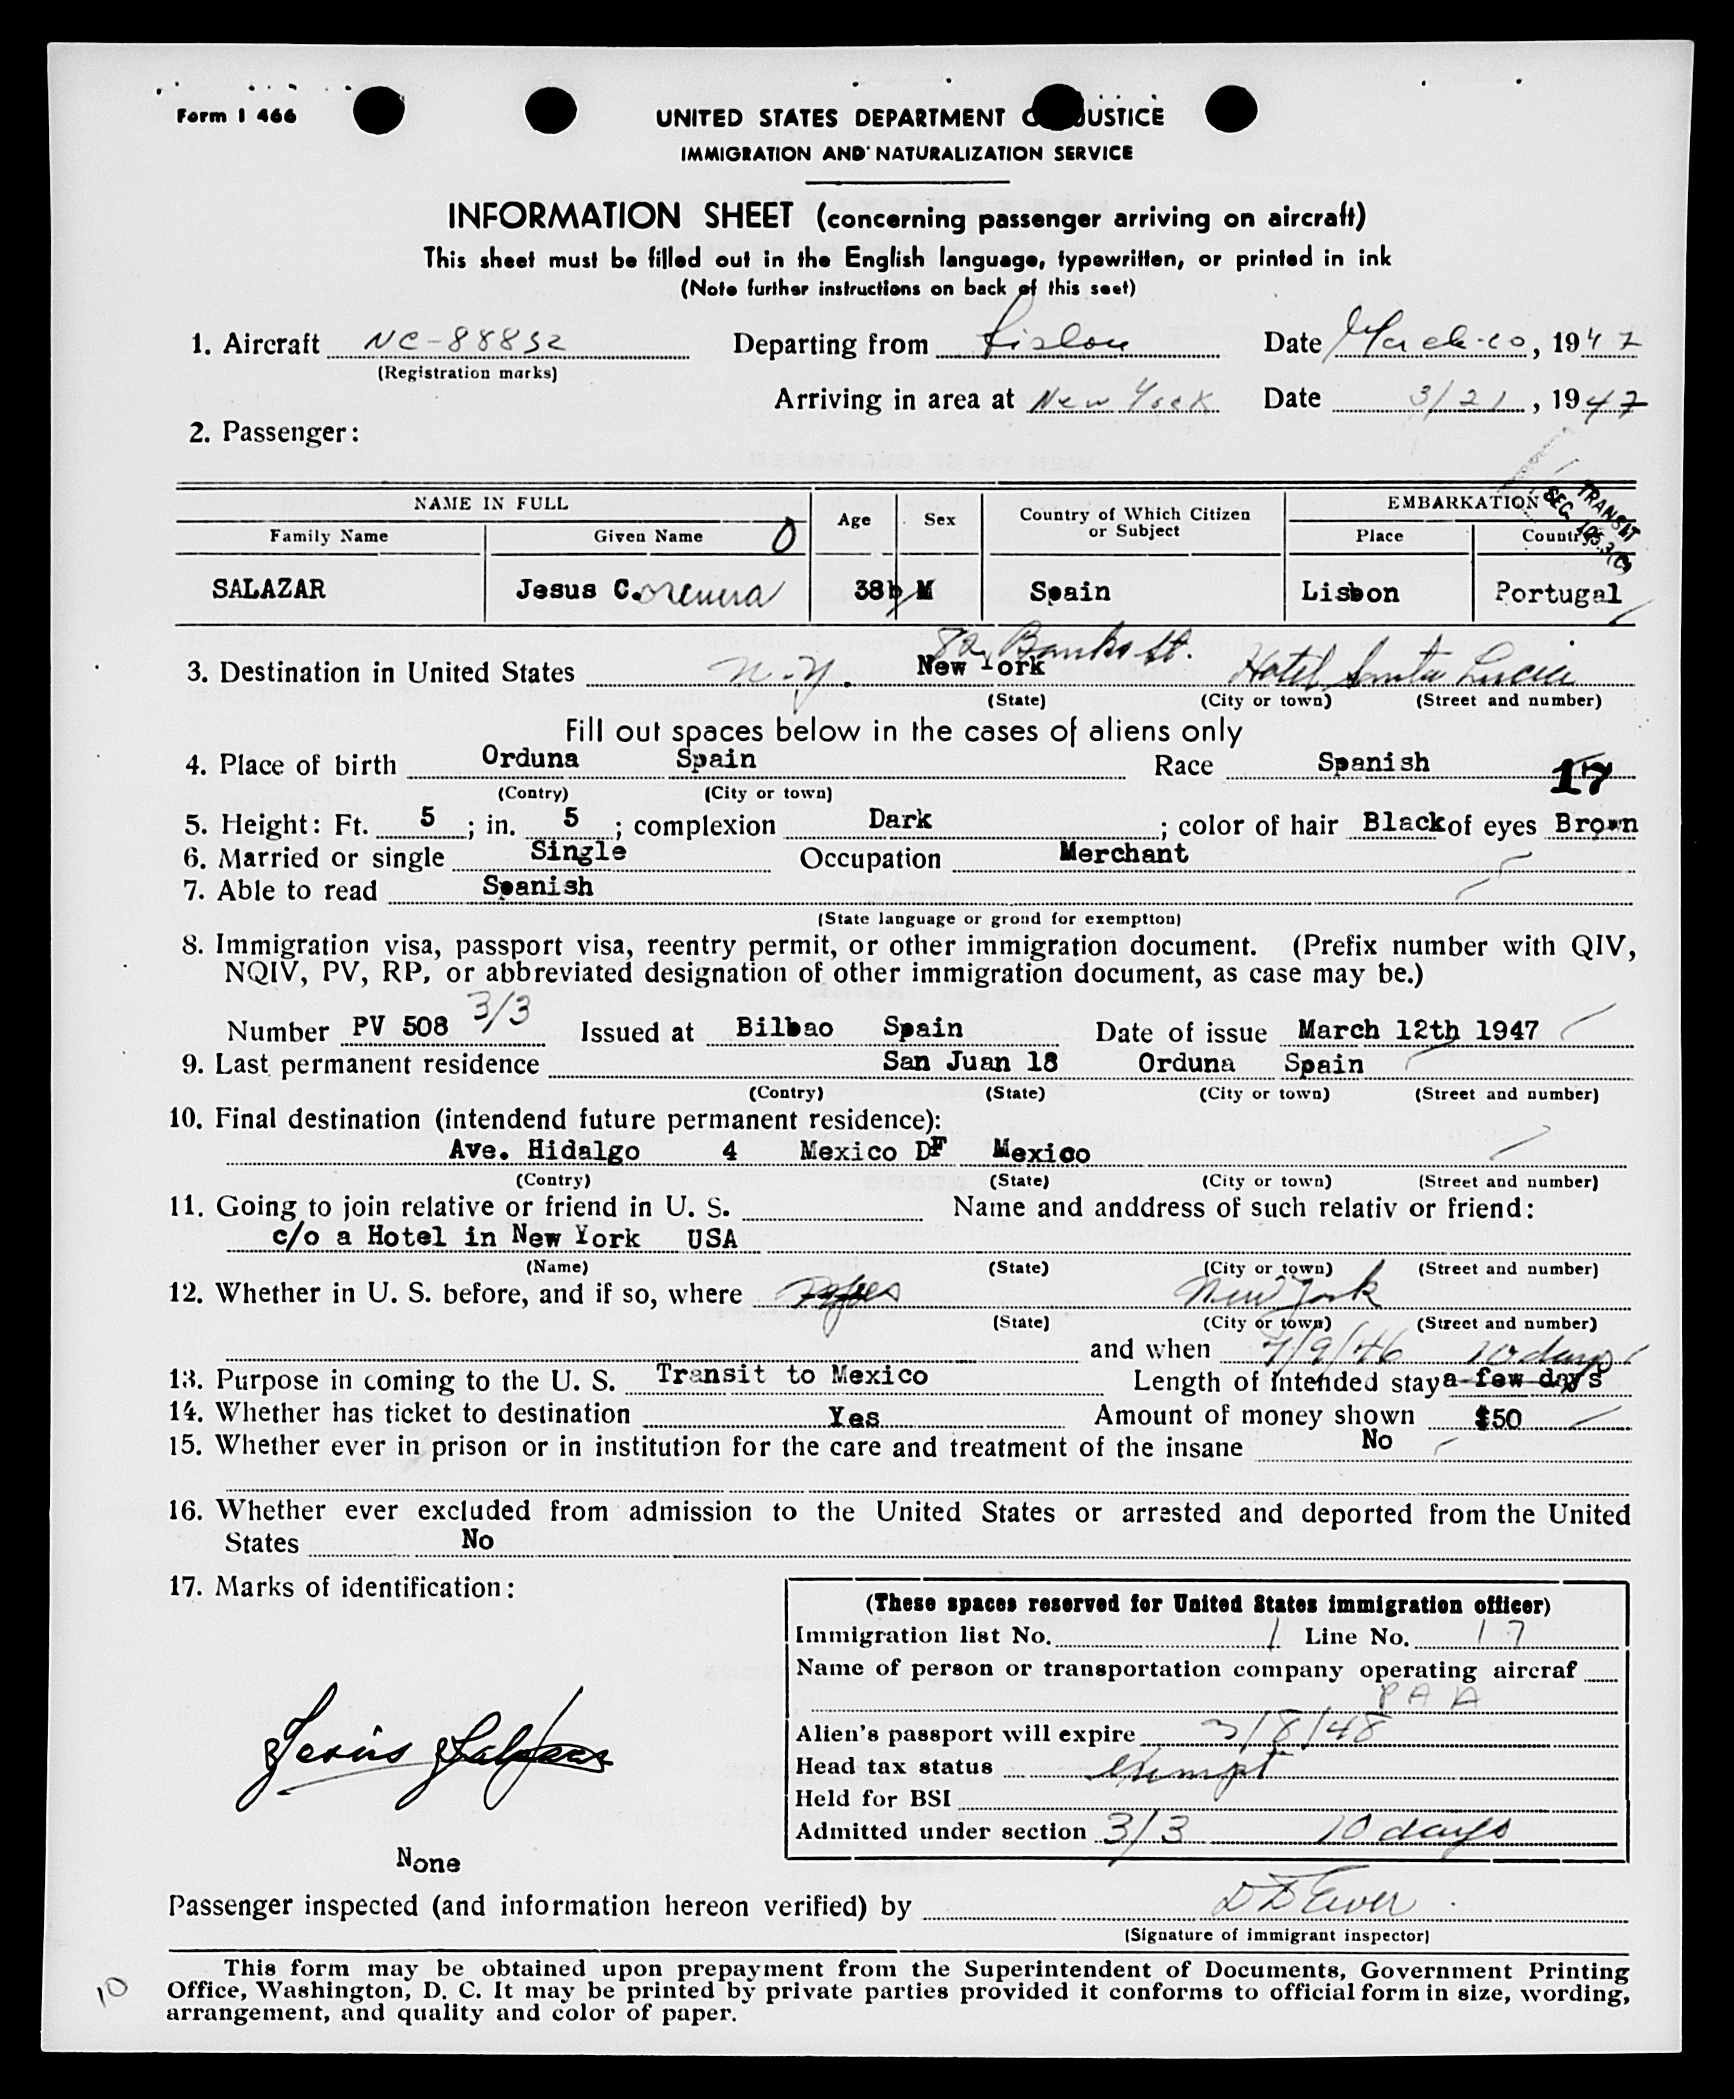 Form I 466
UNITED STATES DEPARTMENT O JUSTICE
IMMIGRATION AND NATURALIZATION SERVICE
INFORMATION SHEET (concerning passenger arriving on aircraft)
This sheet must be filled out in the English language, typewritten, or printed in ink
(Note further instructions on back of this seet)
1. Aircraft NC-88832 Departing from Lisbon Date March 20, 1947
(Registration marks)
Arriving in area at New York Date 3/21, 1947
2. Passenger:
NAME IN FULL Age Sex Country of Which Citizen or Subject EMBARKATION
Family Name Given Name O Place Country
TRANSIT
SEC.
SALAZAR Jesus C. 38 M Spain Lisbon Portugal
82 Banks St.
3. Destination in United States N.Y. New York Hotel Santa Lucia
(State) (City or town) (Street and number)
Fill out spaces below in the cases of aliens only
4. Place of birth Orduna Spain Race Spanish 17
(Contry) (City or town)
5. Height: Ft. 5; in. 5; complexion Dark; color of hair Black of eyes Brown
6. Married or single Single Occupation Merchant
7. Able to read Spanish
(State language or grond for exemptton)
8. Immigration visa, passport visa, reentry permit, or other immigration document. (Prefix number with QIV,
NQIV, PV, RP, or abbreviated designation of other immigration document, as case may be.)
Number PV 508 3/3 Issued at Bilbao Spain Date of issue March 12th 1947
9. Last permanent residence San Juan 18 Orduna Spain
(Contry) (State) (City or town) (Street and number)
10. Final destination (intendend future permanent residence):
Ave. Hidalgo 4 Mexico DF Mexico
(Contry) (State) (City or town) (Street and number)
11. Going to join relative or friend in U. S. Name and anddress of such relativ or friend:
c/o a Hotel in New York USA
(Name) (State) (City or town) (Street and number)
12. Whether in U. S. before, and if so, where yes New York
(State) (City or town) (Street and number)
and when 7/9/46 10 days
13. Purpose in coming to the U. S. Transit to Mexico Length of intended stay a few days
14. Whether has ticket to destination Yes Amount of money shown $50
15. Whether ever in prison or in institution for the care and treatment of the insane No
16. Whether ever excluded from admission to the United States or arrested and deported from the United
States No
17. Marks of identification:
Jesús Salazar
None
(These spaces reserved for United States immigration officer)
Immigration list No. 1 Line No. 17
Name of person or transportation company operating aircraf
PAA
Alien's passport will expire 3/8/48
Head tax status exempt
Held for BSI
Admitted under section 3/3 10 days
Passenger inspected (and information hereon verified) by
(Signature of immigrant inspector)
This form may be obtained upon prepayment from the Superintendent of Documents, Government Printing
Office, Washington, D. C. It may be printed by private parties provided it conforms to official form in size, wording,
arrangement, and quality and color of paper.
10